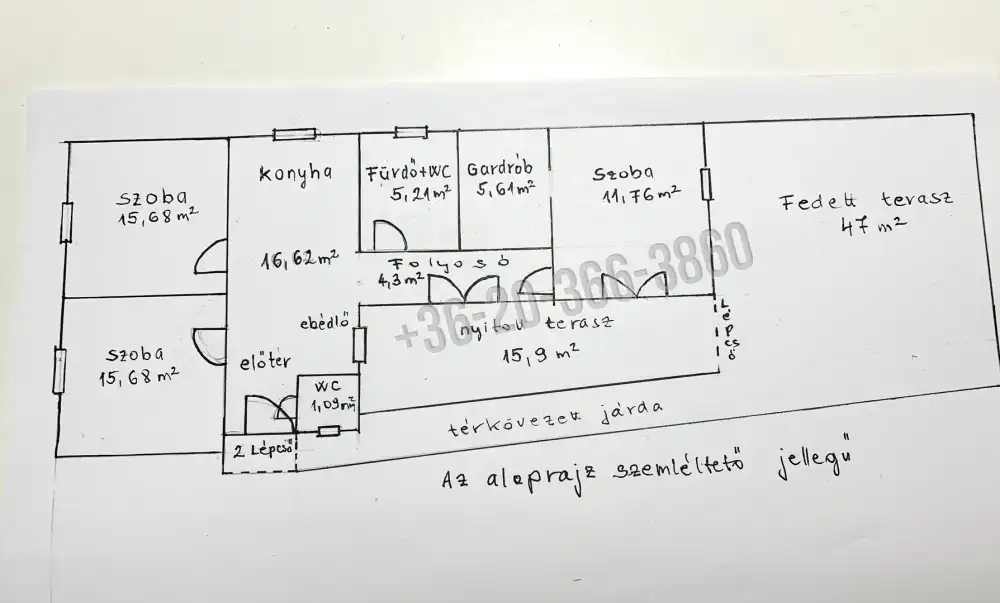 Szoba
15,68 m²
Konyha
16,62 m²
ebédlő
előtér
Fürdő+WC
5,21 m²
Gardrób
5,61 m²
Szoba
11,76 m²
Fedett terasz
47 m²
Folyosó
4,3 m²
+36-20-366-3860
nyitott terasz
15,9 m²
Lépcső
Szoba
15,68 m²
WC
1,09 m²
2 Lépcső
térkövezett járda
Az alaprajz szemléltető jellegű